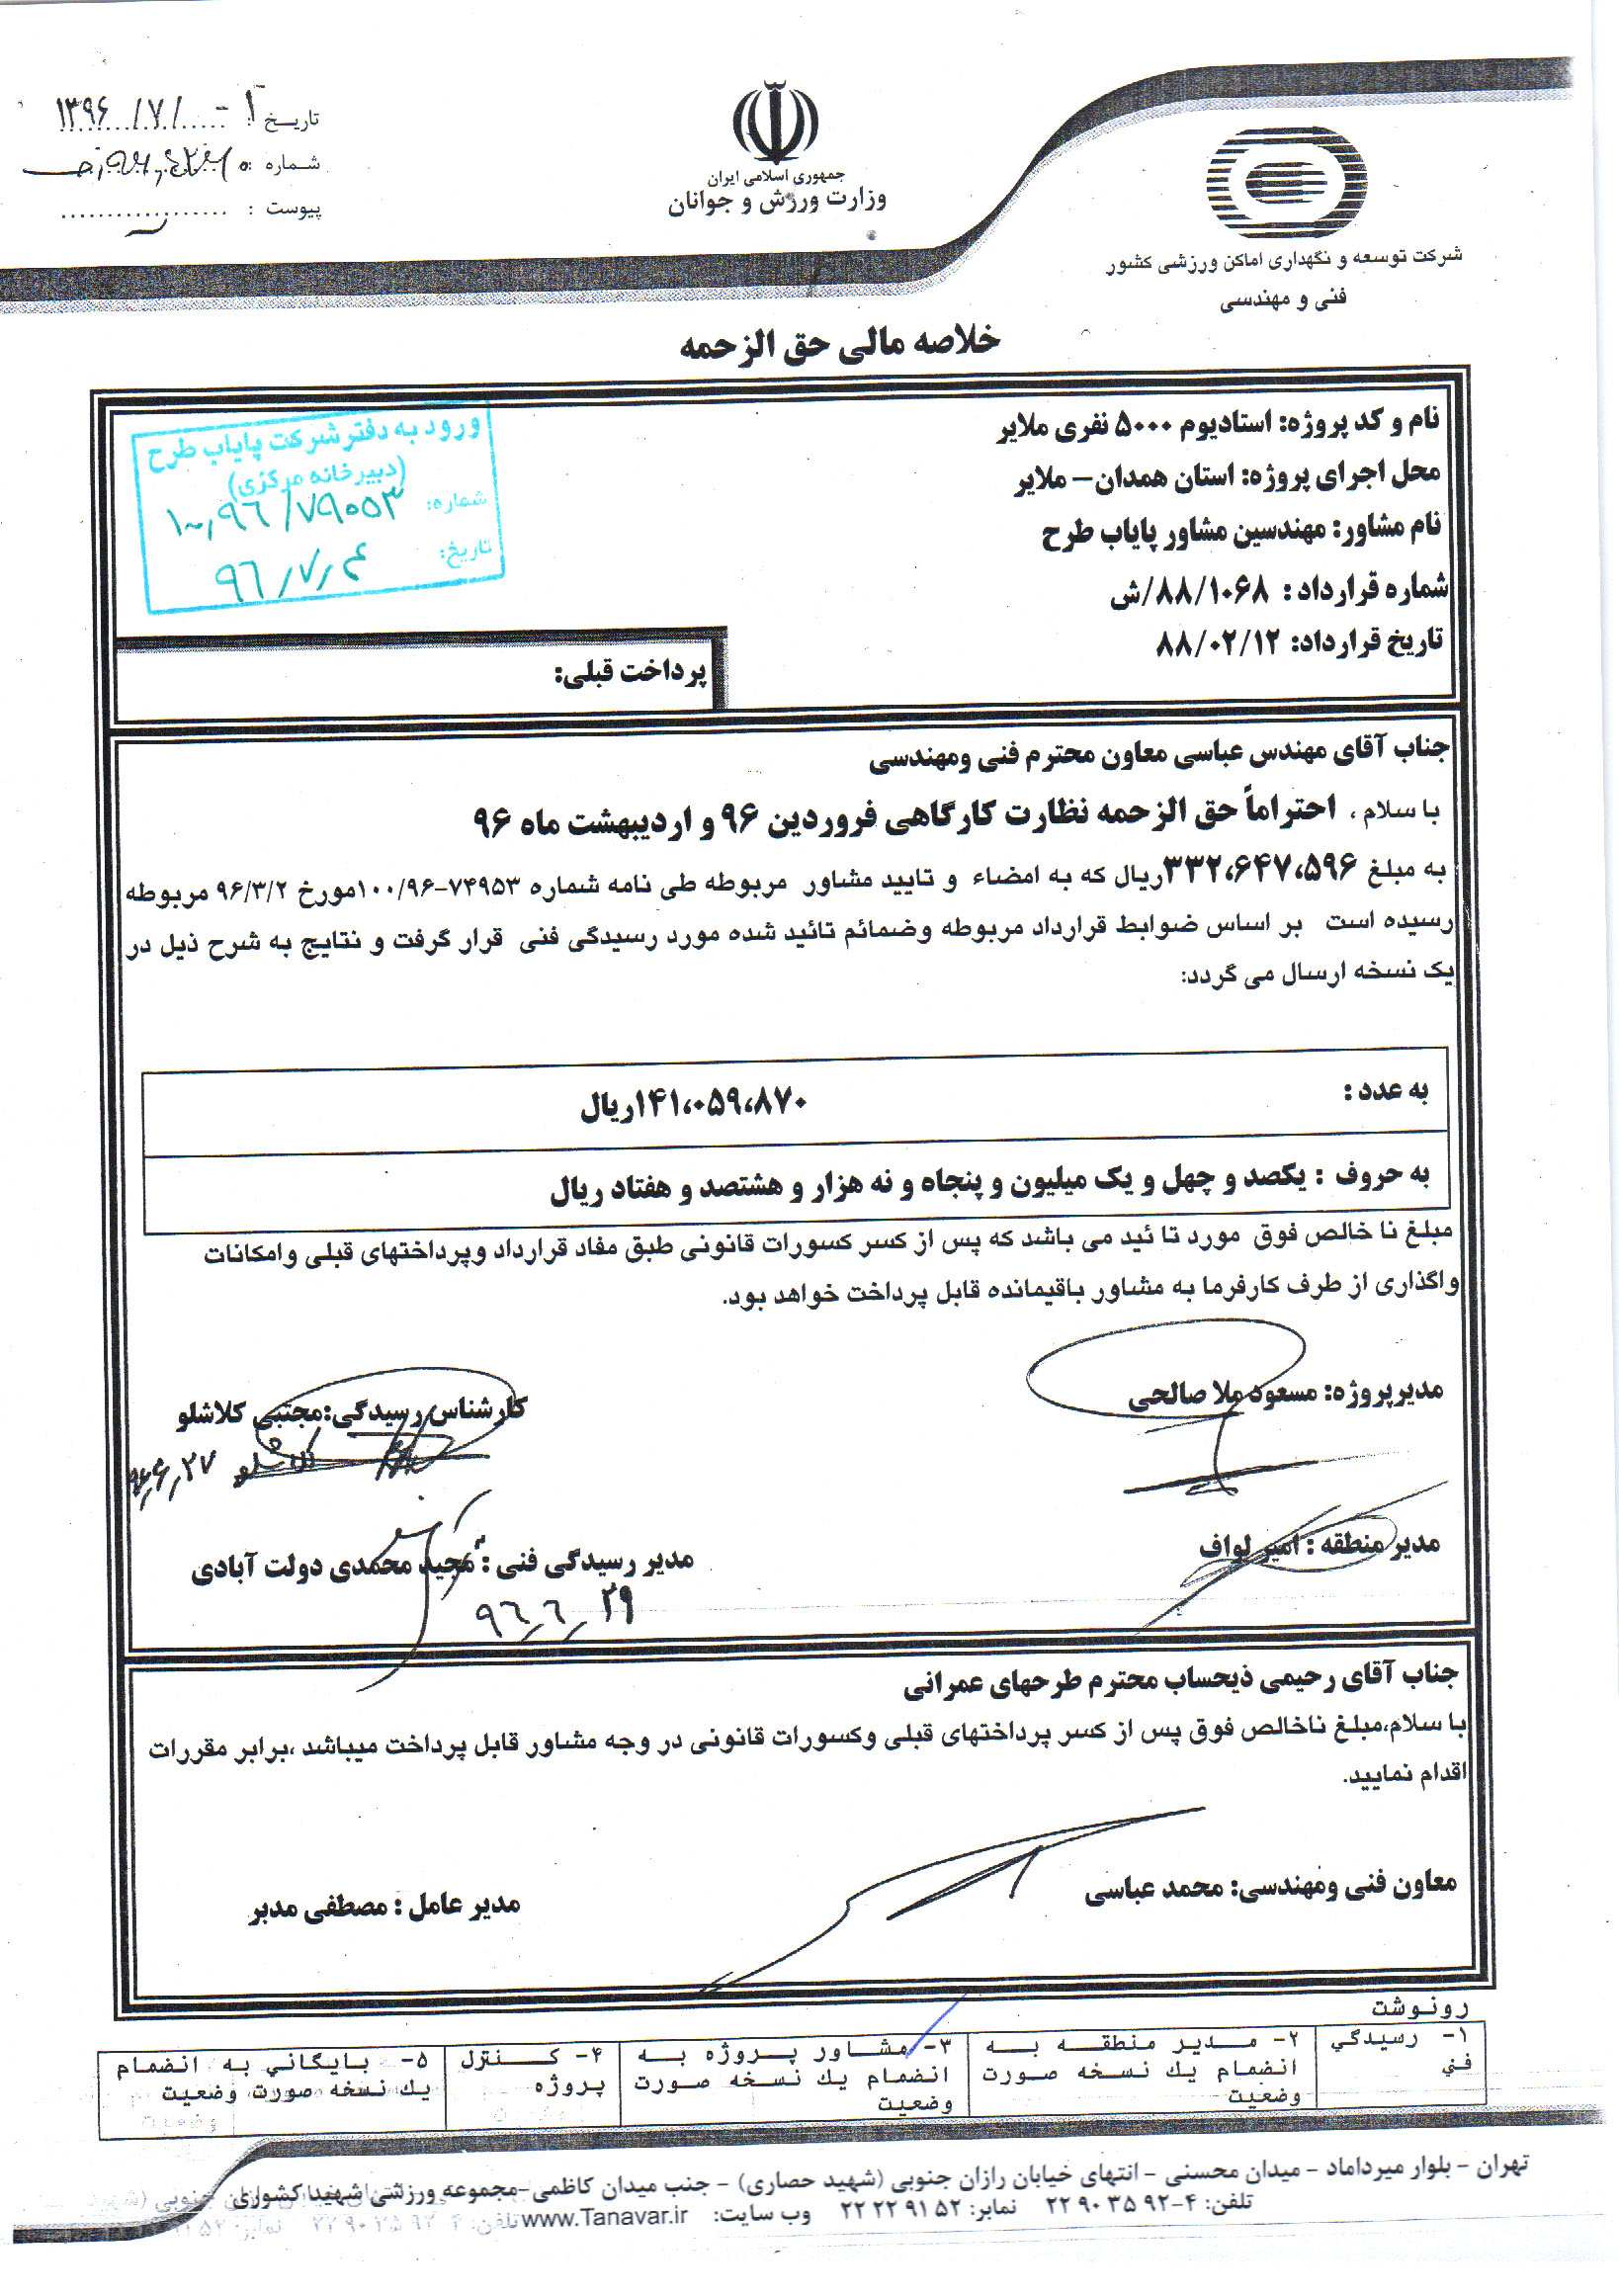 تاریخ : ۱۳۹۶/۷/۰۱
شماره :
پیوست :
جمهوری اسلامی ایران
وزارت ورزش و جوانان
شرکت توسعه و نگهداری اماکن ورزشی کشور
فنی و مهندسی
خلاصه مالی حق الزحمه
نام و کد پروژه: استادیوم ۵۰۰۰ نفری ملایر
محل اجرای پروژه: استان همدان– ملایر
نام مشاور: مهندسین مشاور پایاب طرح
شماره قرارداد : ۸۸/۱۰۶۸/ش
تاریخ قرارداد: ۸۸/۰۲/۱۲
ورود به دفتر شرکت پایاب طرح
(دبیرخانه مرکزی)
شماره: ۱۰۰,۹۶/۷۹۰۵۳
تاریخ: ۹۶/۷/۴
پرداخت قبلی:
جناب آقای مهندس عباسی معاون محترم فنی ومهندسی
با سلام ، احتراماً حق الزحمه نظارت کارگاهی فروردین ۹۶ و اردیبهشت ماه ۹۶
به مبلغ ۳۳۲،۶۴۷،۵۹۶ریال که به امضاء و تایید مشاور مربوطه طی نامه شماره ۷۴۹۵۳-۱۰۰/۹۶مورخ ۹۶/۳/۲ مربوطه
رسیده است بر اساس ضوابط قرارداد مربوطه وضمائم تائید شده مورد رسیدگی فنی قرار گرفت و نتایج به شرح ذیل در
یک نسخه ارسال می گردد:
به عدد : ۱۴۱،۰۵۹،۸۷۰ریال
به حروف : یکصد و چهل و یک میلیون و پنجاه و نه هزار و هشتصد و هفتاد ریال
مبلغ نا خالص فوق مورد تا ئید می باشد که پس از کسر کسورات قانونی طبق مفاد قرارداد وپرداختهای قبلی وامکانات
واگذاری از طرف کارفرما به مشاور باقیمانده قابل پرداخت خواهد بود.
مدیرپروژه: مسعود ملا صالحی
کارشناس رسیدگی:مجتبی کلاشلو
کلاشلو ۹۶,۶,۲۷
مدیر منطقه : امیر لواف
مدیر رسیدگی فنی : مجید محمدی دولت آبادی
۹۶,۶,۲۹
جناب آقای رحیمی ذیحساب محترم طرحهای عمرانی
با سلام،مبلغ ناخالص فوق پس از کسر پرداختهای قبلی وکسورات قانونی در وجه مشاور قابل پرداخت میباشد ،برابر مقررات
اقدام نمایید.
معاون فنی ومهندسی: محمد عباسی
مدیر عامل : مصطفی مدبر
رونوشت
۱- رسیدگي
فني
۲- مدیر منطقه به
انضمام یك نسخه صورت
وضعیت
۳- مشاور پروژه به
انضمام یك نسخه صورت
وضعیت
۴- کنترل
پروژه
۵- بایگاني به انضمام
یك نسخه صورت وضعیت
تهران – بلوار میرداماد – میدان محسنی – انتهای خیابان رازان جنوبی (شهید حصاری) – جنب میدان کاظمی-مجموعه ورزشی شهید کشوری
تلفن: ۴-۹۲ ۳۵ ۹۰ ۲۲ نمابر: ۵۲ ۹۱ ۲۲ ۲۲ وب سایت: www.Tanavar.ir